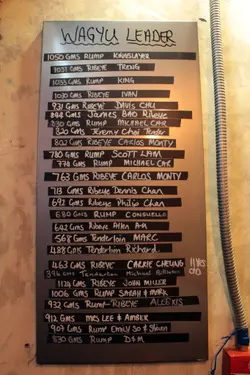 WAGYU LEADER
1050 GMS RUMP KINGSLAYER
1033 GMS RIBEYE TRENG
1033 GMS RUMP KING
1030 GMS RIBEYE IVAN
931 GMS RIBEYE DAVIS CHU
GMS JAMES BAO RIBEYE
830 GMS RUMP MICHAEL CAR
820 GMS Jeremy Choi Tender
802 GMS RIBEYE CARLOS MONTY
780 GMS RUMP SCOTT LAM
778 GMS RUMP MICHAEL CAR
763 GMS RIBEYE CARLOS MONTY
718 GMS Ribeye Dennis Chan
692 GMS Ribeye Philip Chan
680 GMS RUMP CONSUELLO
642 GMS Ribeye Allen
568 GMS Tenderloin MARC
488 GMS Tenderloin Richard
463 GMS RIBEYE CARRIE CHEUNG 11 Yrs OLD
396 GMS Tenderloin Michael
1124 GMS RIBEYE JOHN MILLER
1006 GMS RUMP SARAH & MARK
932 GMS RUMP-RIBEYE ALEXIS
912 GMS MRS LEE & AMBER
907 GMS Rump Emily So & Shaun
830 GMS RUMP D&M